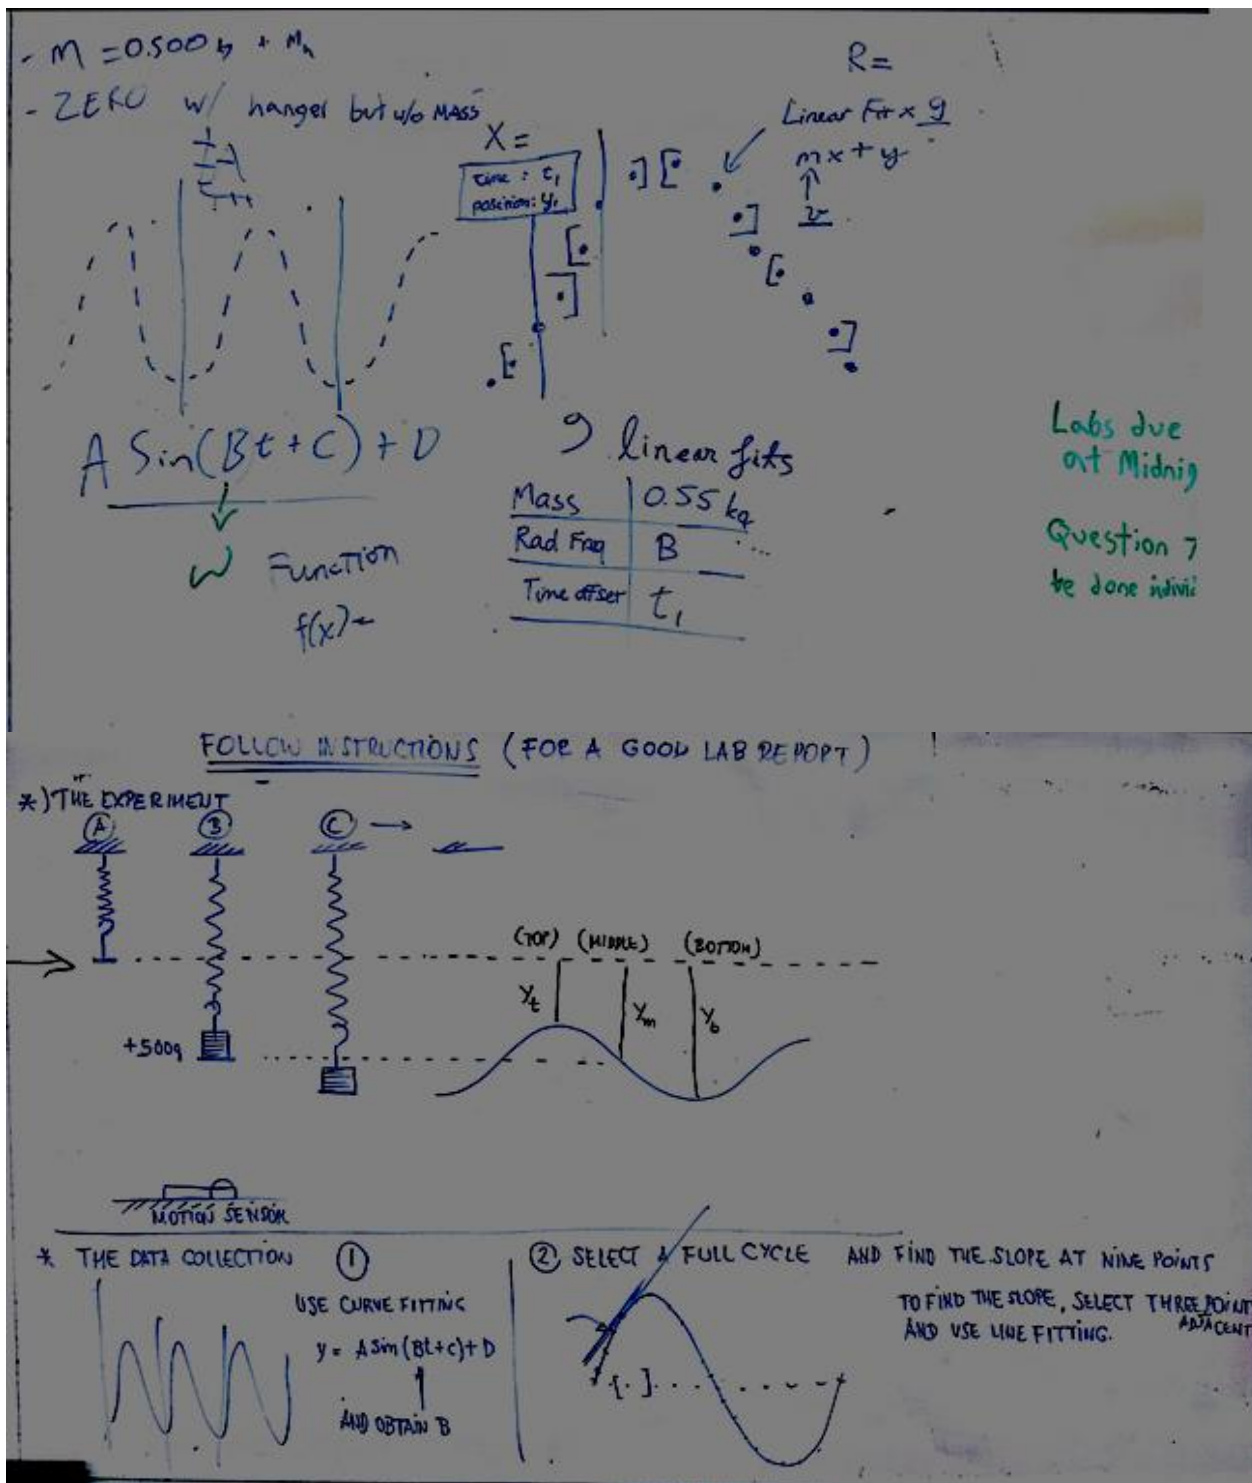 - M = 0.500 kg + Mh
- ZERO w/ hanger but w/o MASS
R =
Linear Fit x 9
mx + y
v
X =
time : t1
position: y1
A Sin(Bt + C) + D
ω
Function
f(x) =
9 linear fits
Mass 0.55 kg
Rad Freq B ...
Time offset t1
Labs due
at Midnig
Question 7
be done indivi
FOLLOW INSTRUCTIONS (FOR A GOOD LAB REPORT)
*) THE EXPERIMENT
A B C
(TOP) (MIDDLE) (BOTTOM)
Yt Ym Yb
+500g
MOTION SENSOR
* THE DATA COLLECTION 1
USE CURVE FITTING
y = A Sin(Bt+c)+D
AND OBTAIN B
2 SELECT A FULL CYCLE AND FIND THE SLOPE AT NINE POINTS
TO FIND THE SLOPE, SELECT THREE POINT
ADJACENT
AND USE LINE FITTING.